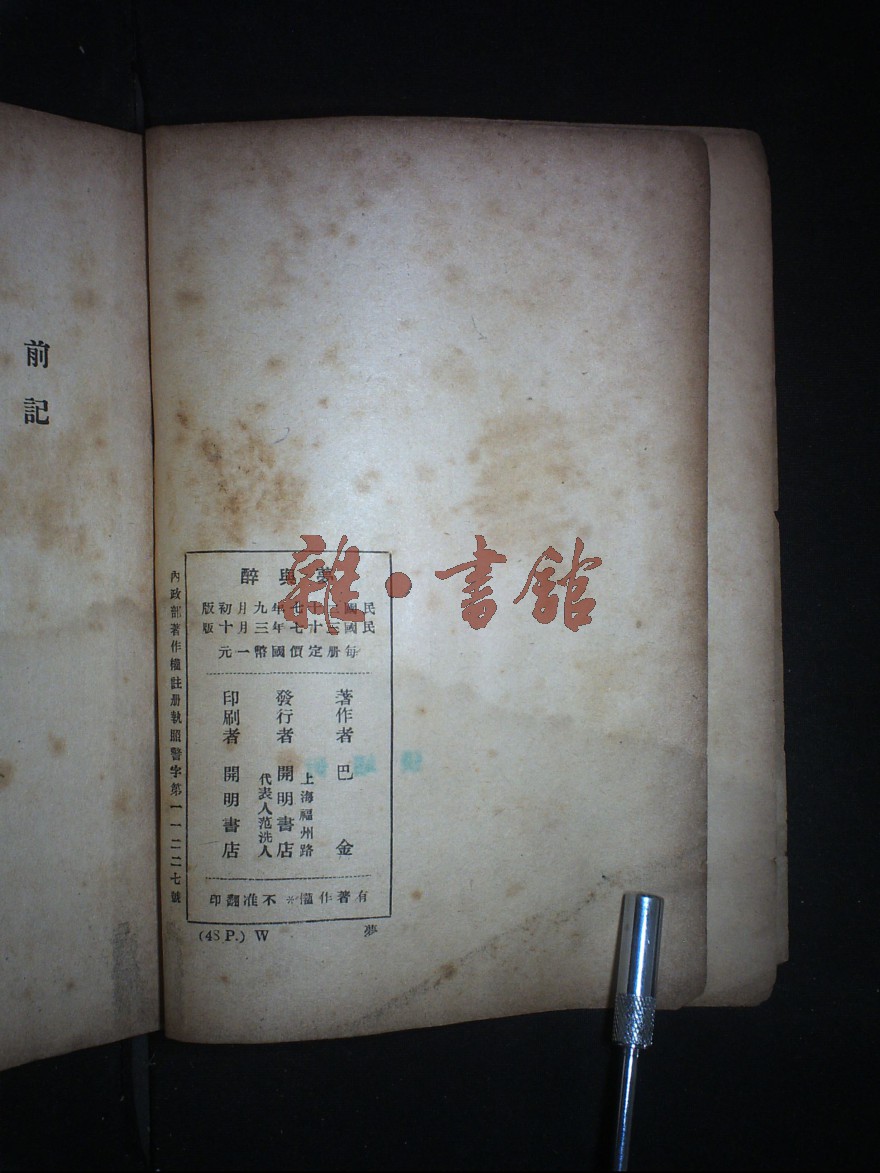 夢與醉
民國二十七年九月初版
民國三十七年三月十版
每册定價國幣一元
著作者 巴金
上海福州路
發行者 開明書店
代表人范洗人
印刷者 開明書店
有著作權*不准翻印
內政部著作權註册執照警字第一一二二七號
(48 P.) W 夢
前記
雜·書館